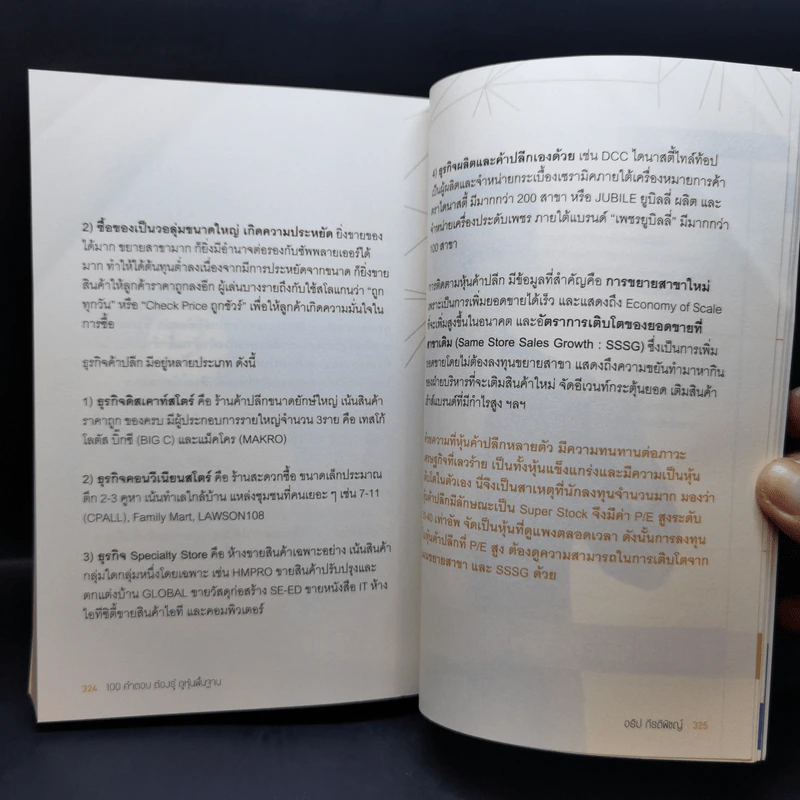 2) ซื้อของเป็นวอลุ่มขนาดใหญ่ เกิดความประหยัด ยิ่งขายของ
ได้มาก ขยายสาขามาก ก็ยิ่งมีอำนาจต่อรองกับซัพพลายเออร์ได้
มาก ทำให้ได้ต้นทุนต่ำลงเนื่องจากมีการประหยัดจากขนาด ก็ยิ่งขาย
สินค้าให้ลูกค้าราคาถูกลงอีก ผู้เล่นบางรายถึงกับใช้สโลแกนว่า "ถูก
ทุกวัน" หรือ "Check Price ถูกชัวร์" เพื่อให้ลูกค้าเกิดความมั่นใจใน
การซื้อ
ธุรกิจค้าปลีก มีอยู่หลายประเภท ดังนี้
1) ธุรกิจดิสเคาท์สโตร์ คือ ร้านค้าปลีกขนาดยักษ์ใหญ่ เน้นสินค้า
ราคาถูก ของครบ มีผู้ประกอบการรายใหญ่จำนวน 3ราย คือ เทสโก้
โลตัส บิ๊กซี (BIG C) และแม็คโคร (MAKRO)
2) ธุรกิจคอนวีเนียนสโตร์ คือ ร้านสะดวกซื้อ ขนาดเล็กประมาณ
ตึก 2-3 คูหา เน้นทำเลใกล้บ้าน แหล่งชุมชนที่คนเยอะ ๆ เช่น 7-11
(CPALL), Family Mart, LAWSON108
3) ธุรกิจ Specialty Store คือ ห้างขายสินค้าเฉพาะอย่าง เน้นสินค้า
กลุ่มใดกลุ่มหนึ่งโดยเฉพาะ เช่น HMPRO ขายสินค้าปรับปรุงและ
ตกแต่งบ้าน GLOBAL ขายวัสดุก่อสร้าง SE-ED ขายหนังสือ IT ห้าง
ไอทีซิตี้ขายสินค้าไอที และคอมพิวเตอร์
324 100 คำตอบ ต้องรู้ ดูหุ้นพื้นฐาน
4) ธุรกิจผลิตและค้าปลีกเองด้วย เช่น DCC ไดนาสตี้ไทล์ท้อป
เป็นผู้ผลิตและจำหน่ายกระเบื้องเซรามิคภายใต้เครื่องหมายการค้า
ตราไดนาสตี้ มีมากกว่า 200 สาขา หรือ JUBILE ยูบิลลี่ ผลิต และ
จำหน่ายเครื่องประดับเพชร ภายใต้แบรนด์ "เพชรยูบิลลี่" มีมากกว่า
100 สาขา
การติดตามหุ้นค้าปลีก มีข้อมูลที่สำคัญคือ การขยายสาขาใหม่
เพราะเป็นการเพิ่มยอดขายได้เร็ว และแสดงถึง Economy of Scale
ที่จะเพิ่มสูงขึ้นในอนาคต และอัตราการเติบโตของยอดขายที่
สาขาเดิม (Same Store Sales Growth : SSSG) ซึ่งเป็นการเพิ่ม
ยอดขายโดยไม่ต้องลงทุนขยายสาขา แสดงถึงความขยันทำมาหากิน
ของฝ่ายบริหารที่จะเติมสินค้าใหม่ จัดอีเวนท์กระตุ้นยอด เติมสินค้า
เฮ้าส์แบรนด์ที่มีกำไรสูง ฯลฯ
ด้วยความที่หุ้นค้าปลีกหลายตัว มีความทนทานต่อภาวะ
เศรษฐกิจที่เลวร้าย เป็นทั้งหุ้นแข็งแกร่งและมีความเป็นหุ้น
เติบโตในตัวเอง นี่จึงเป็นสาเหตุที่นักลงทุนจำนวนมาก มองว่า
หุ้นค้าปลีกมีลักษณะเป็น Super Stock จึงมีค่า P/E สูงระดับ
เท่าอัพ จัดเป็นหุ้นที่ดูแพงตลอดเวลา ดังนั้นการลงทุน
หุ้นค้าปลีกที่ P/E สูง ต้องดูความสามารถในการเติบโตจาก
แผนขยายสาขา และ SSSG ด้วย
อธิป กีรติพิชญ์ 325